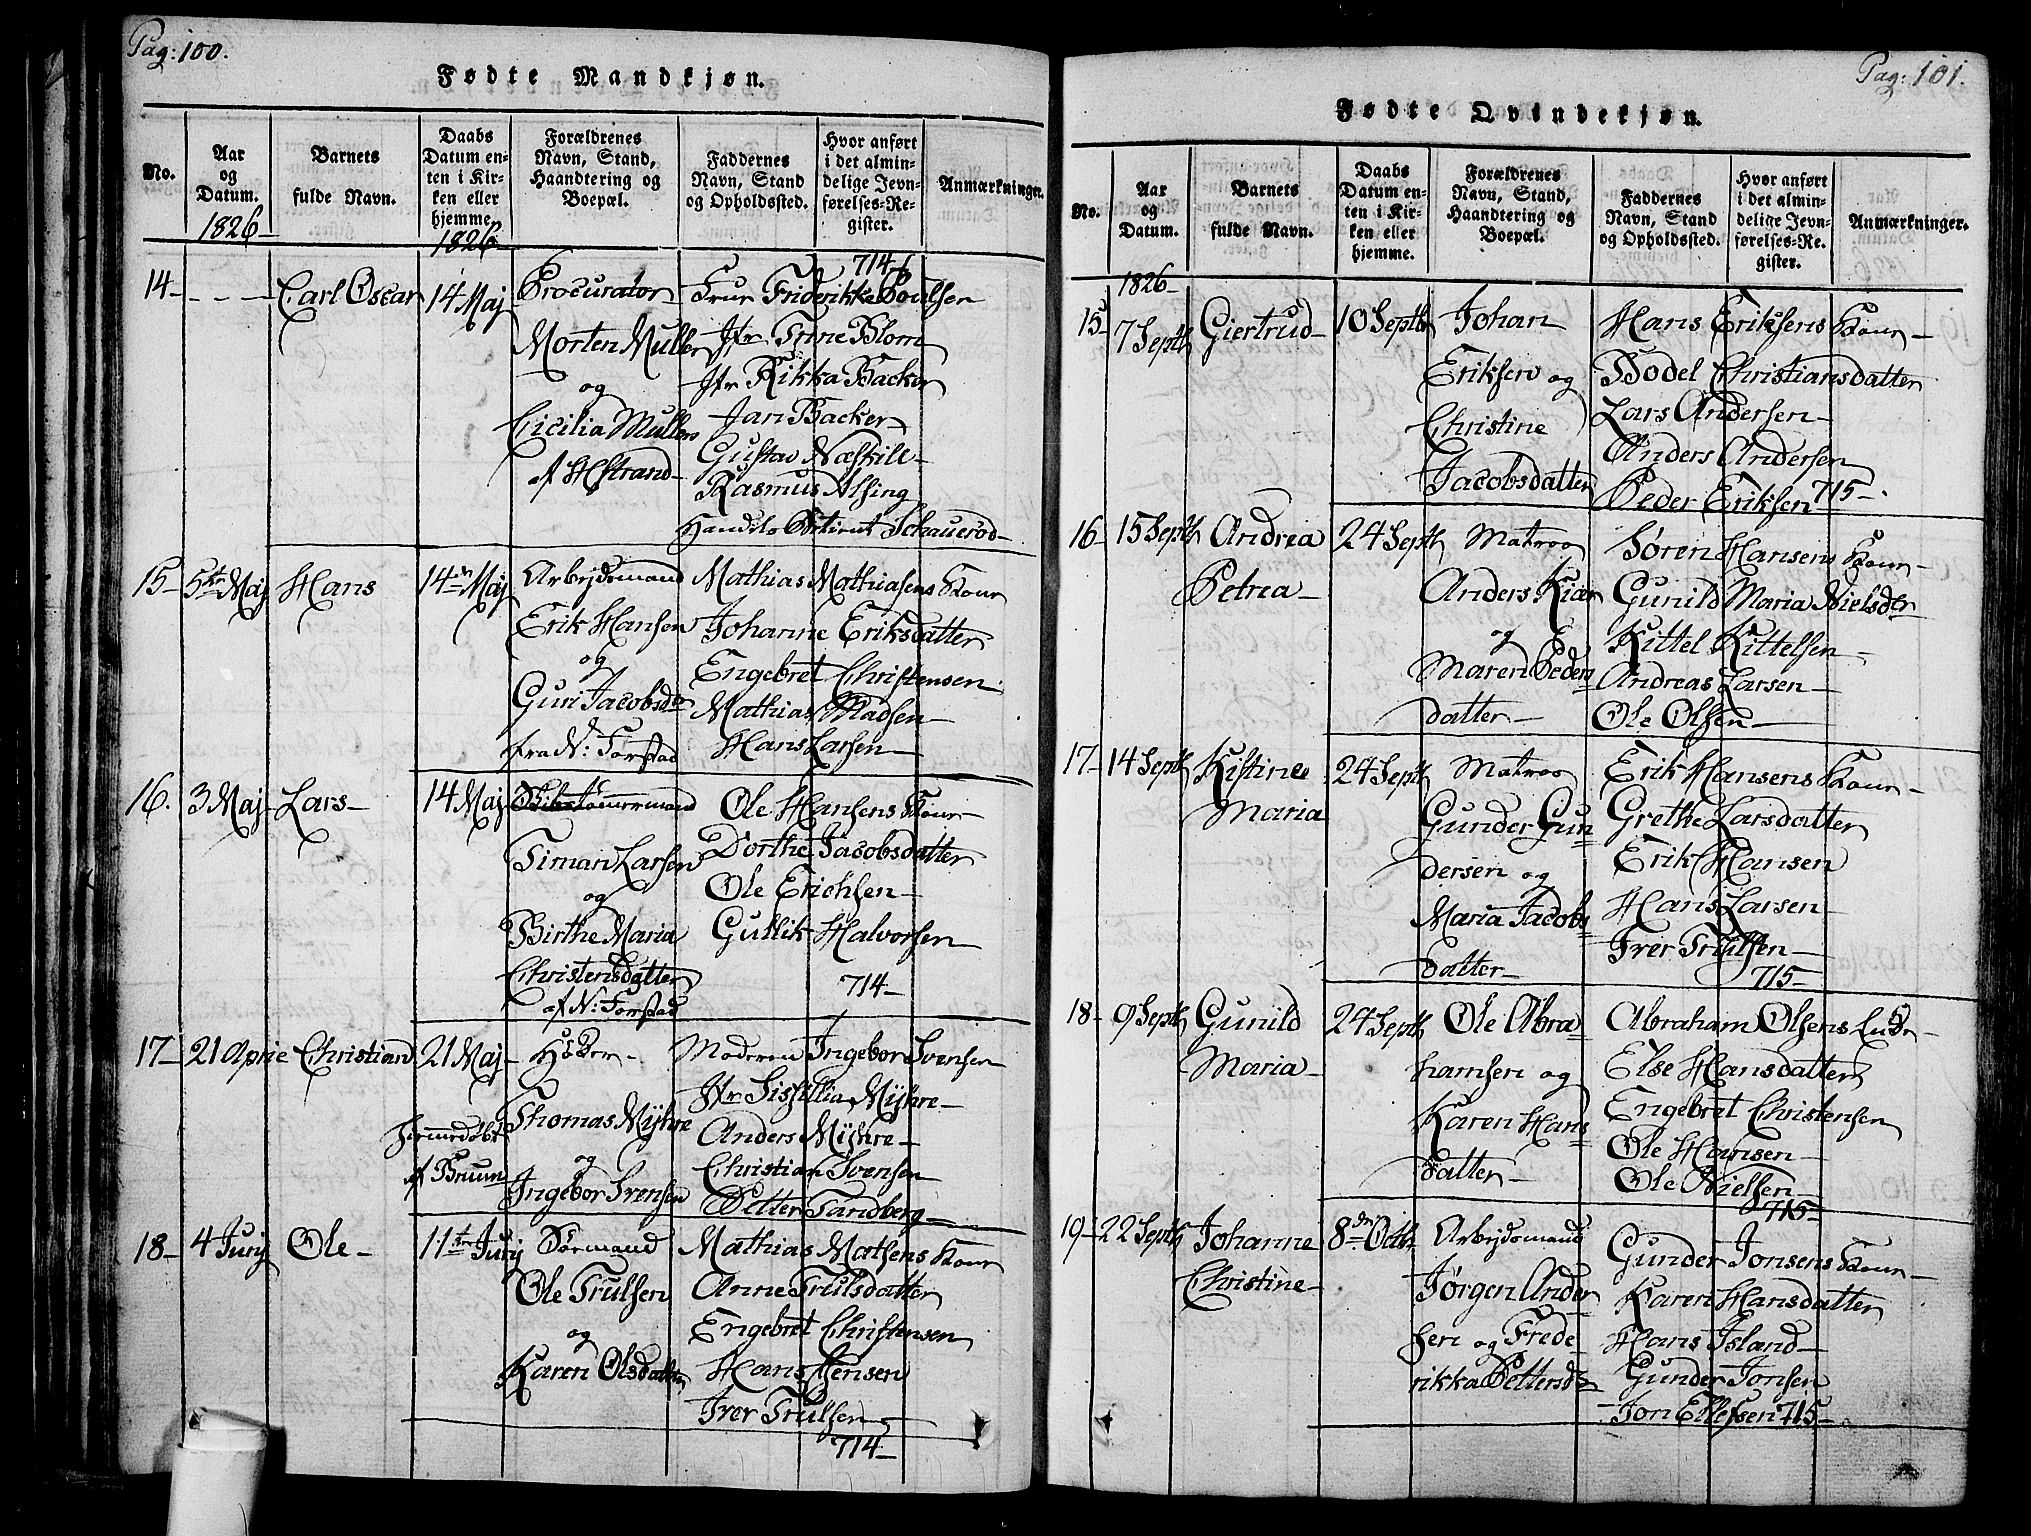 Pag: 100.
Fødte Mandkjøn.
No.
Aar
og
Datum.
1826
Barnets
fulde Navn.
Daabs
Datum en-
ten i Kir-
ken eller
hjemme.
1826
Forældrenes
Navn, Stand,
Haandtering og
Boepæl.
Faddernes
Navn, Stand
og Opholdssted.
Hvor anført
i det almin-
delige Jevn-
førelses-Re-
gister.
Anmærkninger.
14 - - - Carl Oscar 14 Maj
Procurator
Morten Muller
og
Cicilia Mullers
af HStrand
714
Frue Friderikke Poulsen
Jfr Trine Blom
Jfr Rikka Backer
Jan Backer
Gustav
Rasmus Alsing
Schauerød
15 5te Maj Hans 14de Maj
Arbejdsmand
Erik Hansen
og
Guri Jacobsdr
fra N: Forstad
Mathias Mathiasens Kone
Johanne Eriksdatter
Engebret Christensen
Mathias Madsen
Hans Larsen
16. 3 Maj Lars 14 Maj
Timan Larsen
og
Birthe Maria
Christensdatter
af N: Forstad
Ole Hansens Kone
Dorthe Jacobsdatter
Ole Erichsen
Gullik Halvorsen
714
17 21 Apríl Christian 21 Maj
hjemmedøbt
af Bruun
Thomas Myhre
og
Ingebor Svensen
Moderen Ingebor Svensen
Jfr Sissillia Myhre
Anders Myhre
Christian Svensen
Petter Sandberg
18 4 Junj Ole 11te Junj
Sømand
Ole Trulsen
og
Karen Olsdatter
Mathias Mathsens Kone
Anne Trulsdatter
Engebret Christensen
Hans Jensen
Iver Trulsen
714
Pag: 101.
Fødte Qvindekjøn.
No.
Aar
og
Datum.
1826
Barnets
fulde Navn.
Daabs
Datum en-
ten i Kir-
ken eller
hjemme.
Forældrenes
Navn, Stand,
Haandtering og
Boepæl.
Faddernes
Navn, Stand
og Opholdssted.
Hvor anført
i det almin-
delige Jevn-
førelses-Re-
gister.
Anmærkninger.
15 7 Septb Giertrud 10 Septb
Johan
Eriksen og
Christine
Jacobsdatter
Hans Eriksens Kone
Bodel Christiansdatter
Lars Andersen
Anders Andersen
Peder Eriksen 715
16 15 Septb Andrea
Petrea
24 Septb
Matros
Anders Kiær
og
Maren Peders
datter
Søren Hansens Kone
Gunild Maria Nielsdter
Kittel Kittelsen
Andreas Larsen
Ole Olsen
17 14 Septb Kistine
Maria
24 Septb
Matros
Gunder Gun
dersen og
Maria Jacobs
datter
Erik Hansens Kone
Grethe Larsdatter
Erik Hansen
Hans Larsen
Iver Trulsen
715
18 9 Septb Gunild
Maria
24 Septb
Ole Abra
hamsen og
Karen Hans
datter
Abraham Olsens
Else Hansdatter
Engebret Christensen
Ole Hansen
Ole Nielsen
715
19 22 Septb Johanne
Christine
8de Octb
Arbejdsmand
Jørgen Ander
sen og Frede
rikka Pettersd
Gunder Jonsens Kone
Karen Hansdatter
Hans Island
Gunder Jonsen
Jon Ellefsen 715